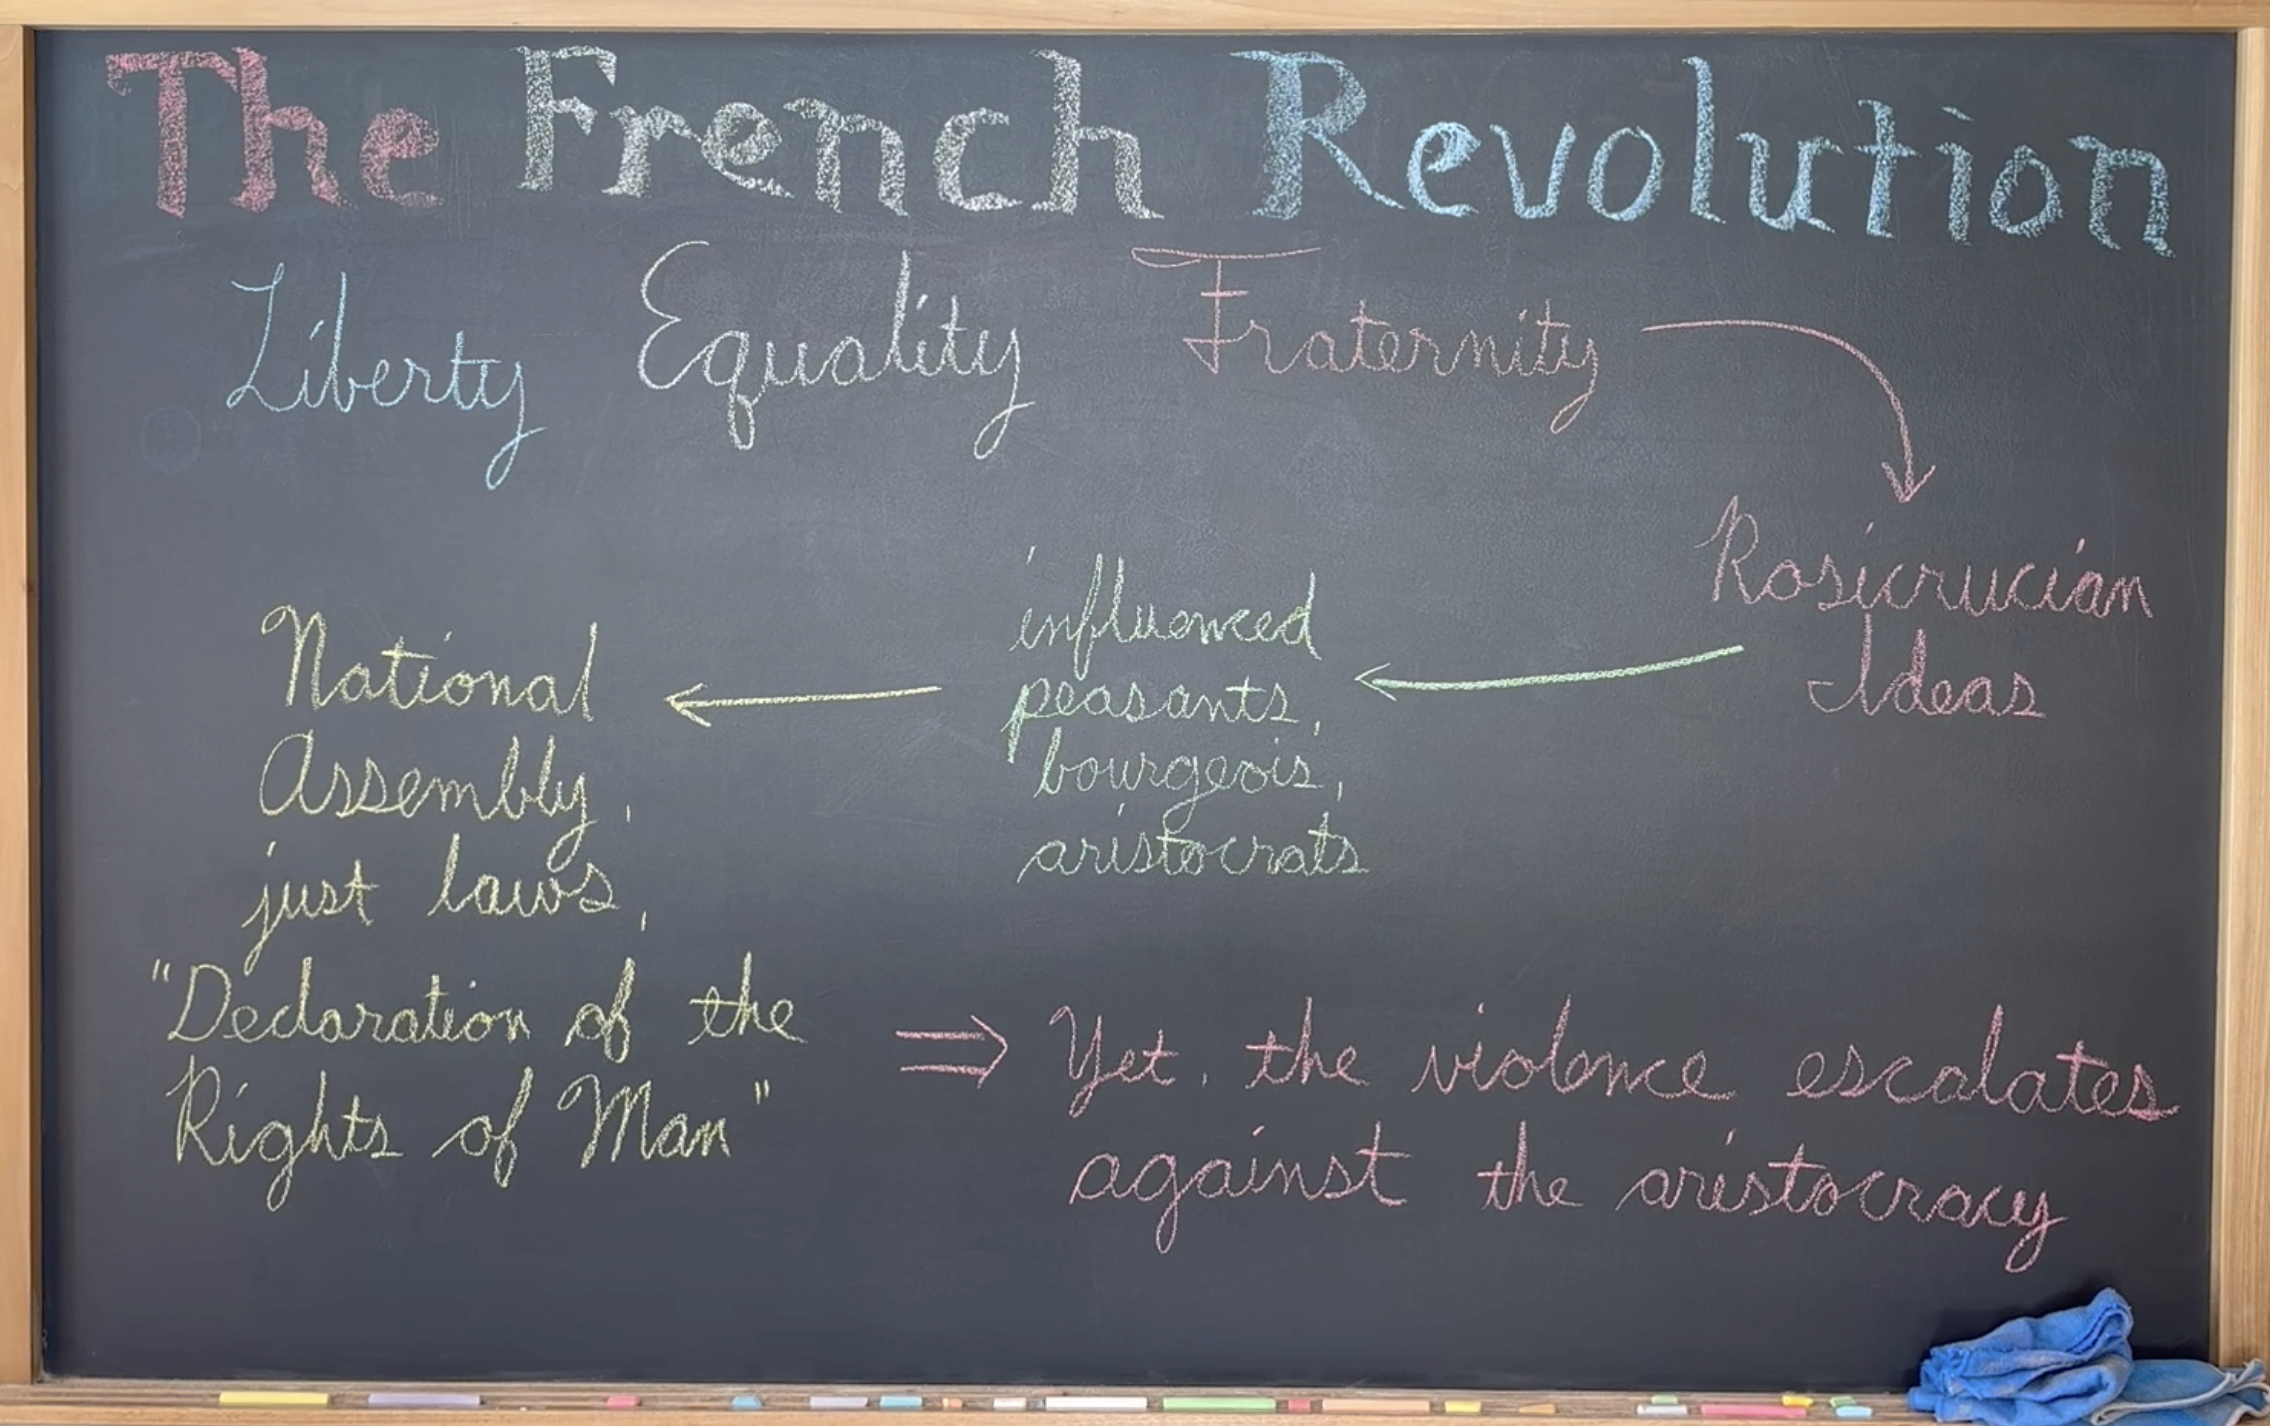 The French Revolution
Liberty Equality Fraternity
Rosicrucian
Ideas
influenced
peasants,
bourgeois,
aristocrats
National
Assembly,
just laws,
"Declaration of the
Rights of Man"
⇒ Yet, the violence escalates
against the aristocracy